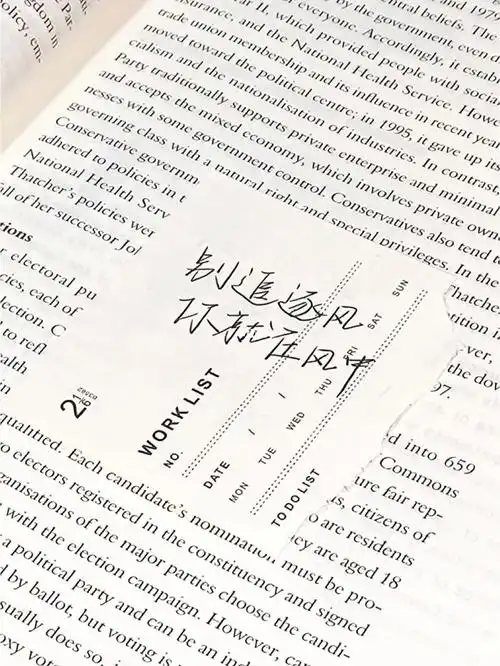 ngdom in
policy, em
and 1979
beliefs. The
by the government, even
everyone. Accordingly, it
ar II, which provided people with
and the National Health Service.
trade union membership and its influence in recent
moved toward the political centre; in 1995, it gave up its
cialism and the nationalisation of industries. In contrast,
Party traditionally supports private enterprise and minimal
and accepts the mixed economy, which involves private
nesses with some government control. Conservatives also tend
governing class with a natural right and special privileges. In the
Conservative governm
adhered to policies in t
National Health Serv
Thatcher's policies wer
of her successor
别追逐风
你就在风中
WORK LIST
NO.
DATE / /
MON TUE WED THU FRI SAT SUN
TO DO LIST
21
electoral pu
cies, each of
lection. C
to refl
ealth
in
Thatche
etition
ver,
the
97.
d into 659
Commons
ure fair rep-
citizens of
o are residents
ey are aged 18
qualified. Each candidate's nomination must be pro-
electors registered in the constituency and signed
ganisations of the major parties choose the candi-
with the election campaign. However,
a political party and can be an
by ballot, but voting is
sually does so,
oxy